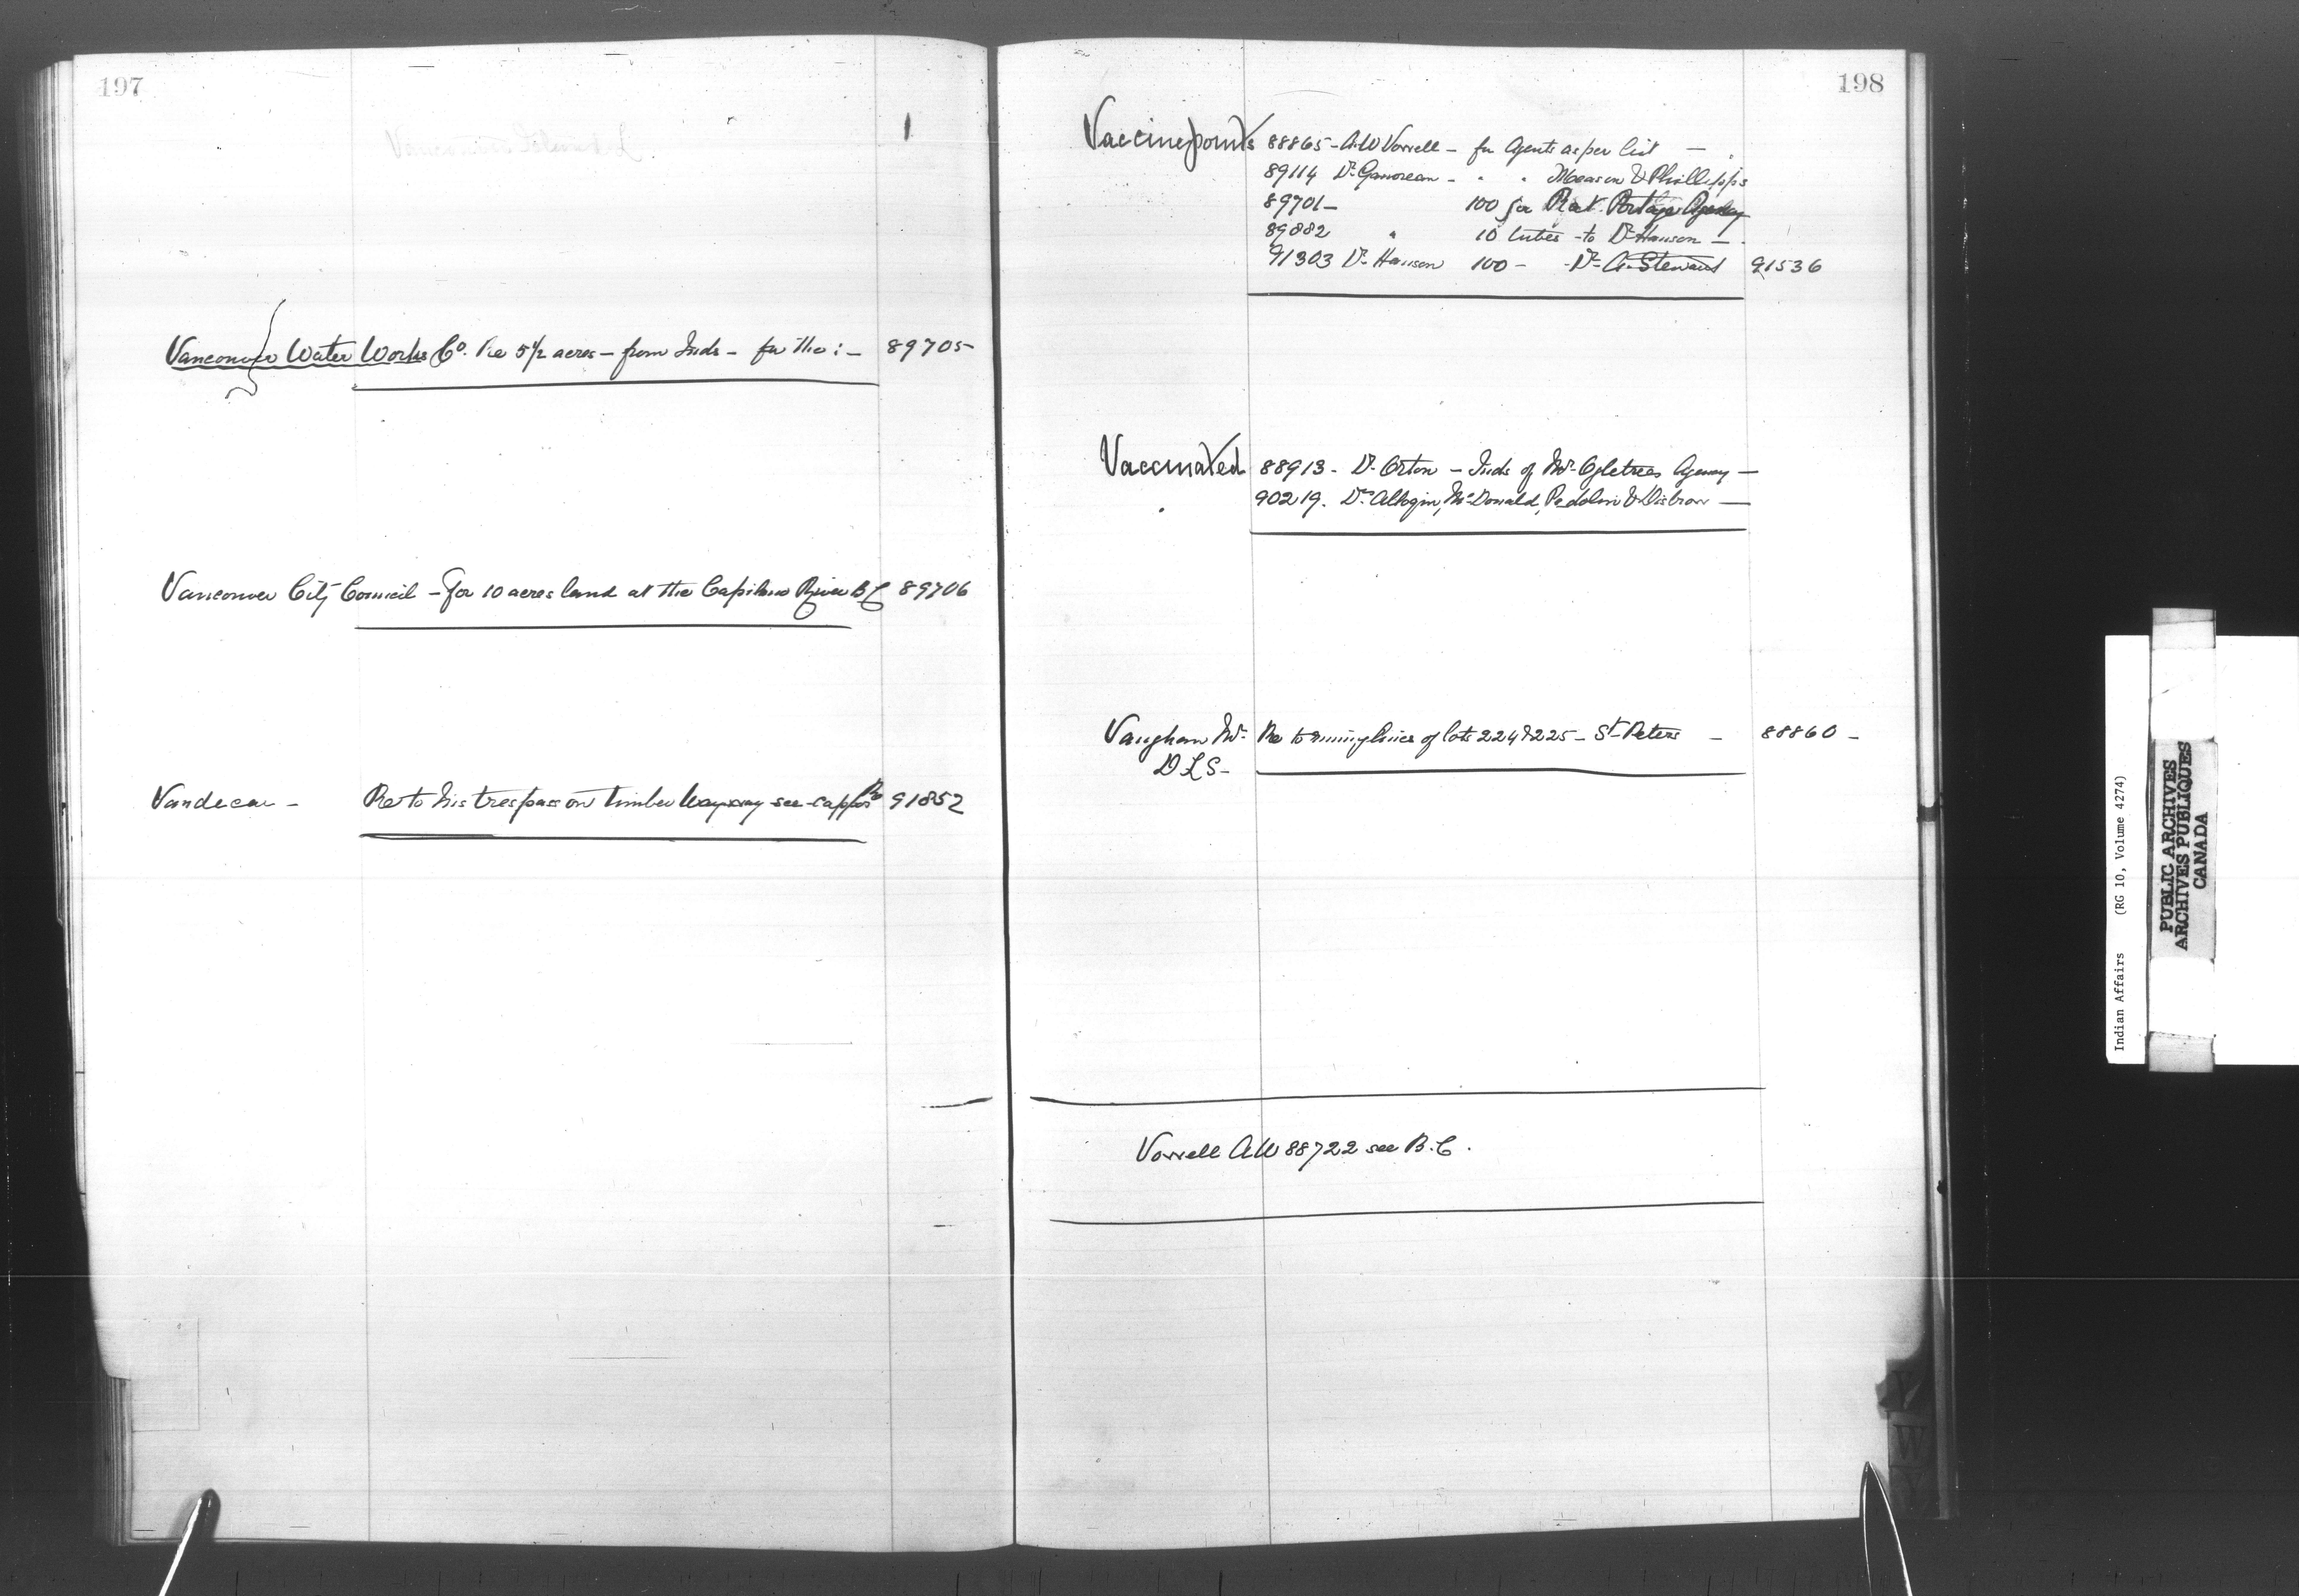 197
Vancouver Water Works Co. Re 5 1/2 acres – from Inds – for the : – 89705
Vancouver City Council – for 10 acres land at the Capilano River BC 89706
Vandecar – Re to his trespass on timber see 91852
198
Vaccine points 88865 – A.W. Vowell – for Agents as per list –
89114 Dr – " " Meason & Phillipps
89701 – 100 for Rat Portage Agency
89882 " 10 tubes – to Dr Hanson –
91303 Dr Hanson 100 – – Dr A. Stewart 91536
Vaccinated 88913 – Dr Orton – Inds of Mr Ogletrees Agency –
90219. Drs McDonald, &
Vaughan Mr Re to running lines of lots 224 & 225 – St Peters – 88860 –
D L S –
Vowell A W 88722 see B.C.
W
Y
Indian Affairs (RG 10, Volume 4274)
PUBLIC ARCHIVES
ARCHIVES PUBLIQUES
CANADA